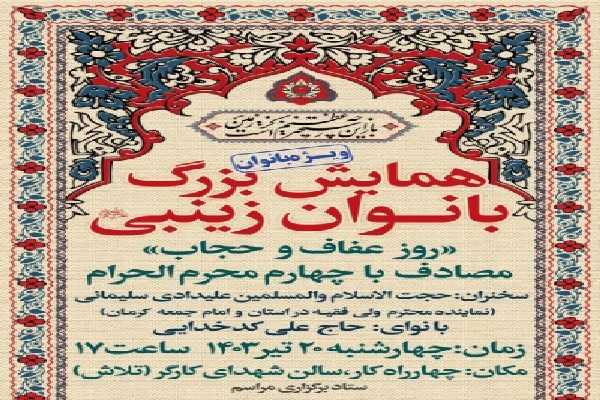 باز این چه رستخیز عظیم است کز زمین
ویژه بانوان
همایش بزرگ
بانوان زینبی
«روز عفاف و حجاب»
مصادف با چهارم محرم الحرام
سخنران: حجت الاسلام والمسلمین علیدادی سلیمانی
(نماینده محترم ولی فقیه در استان و امام جمعه کرمان)
با نوای: حاج علی کدخدایی
زمان: چهارشنبه ۲۰ تیر ۱۴۰۳ ساعت ۱۷
مکان: چهارراه کار، سالن شهدای کارگر (تلاش)
ستاد برگزاری مراسم